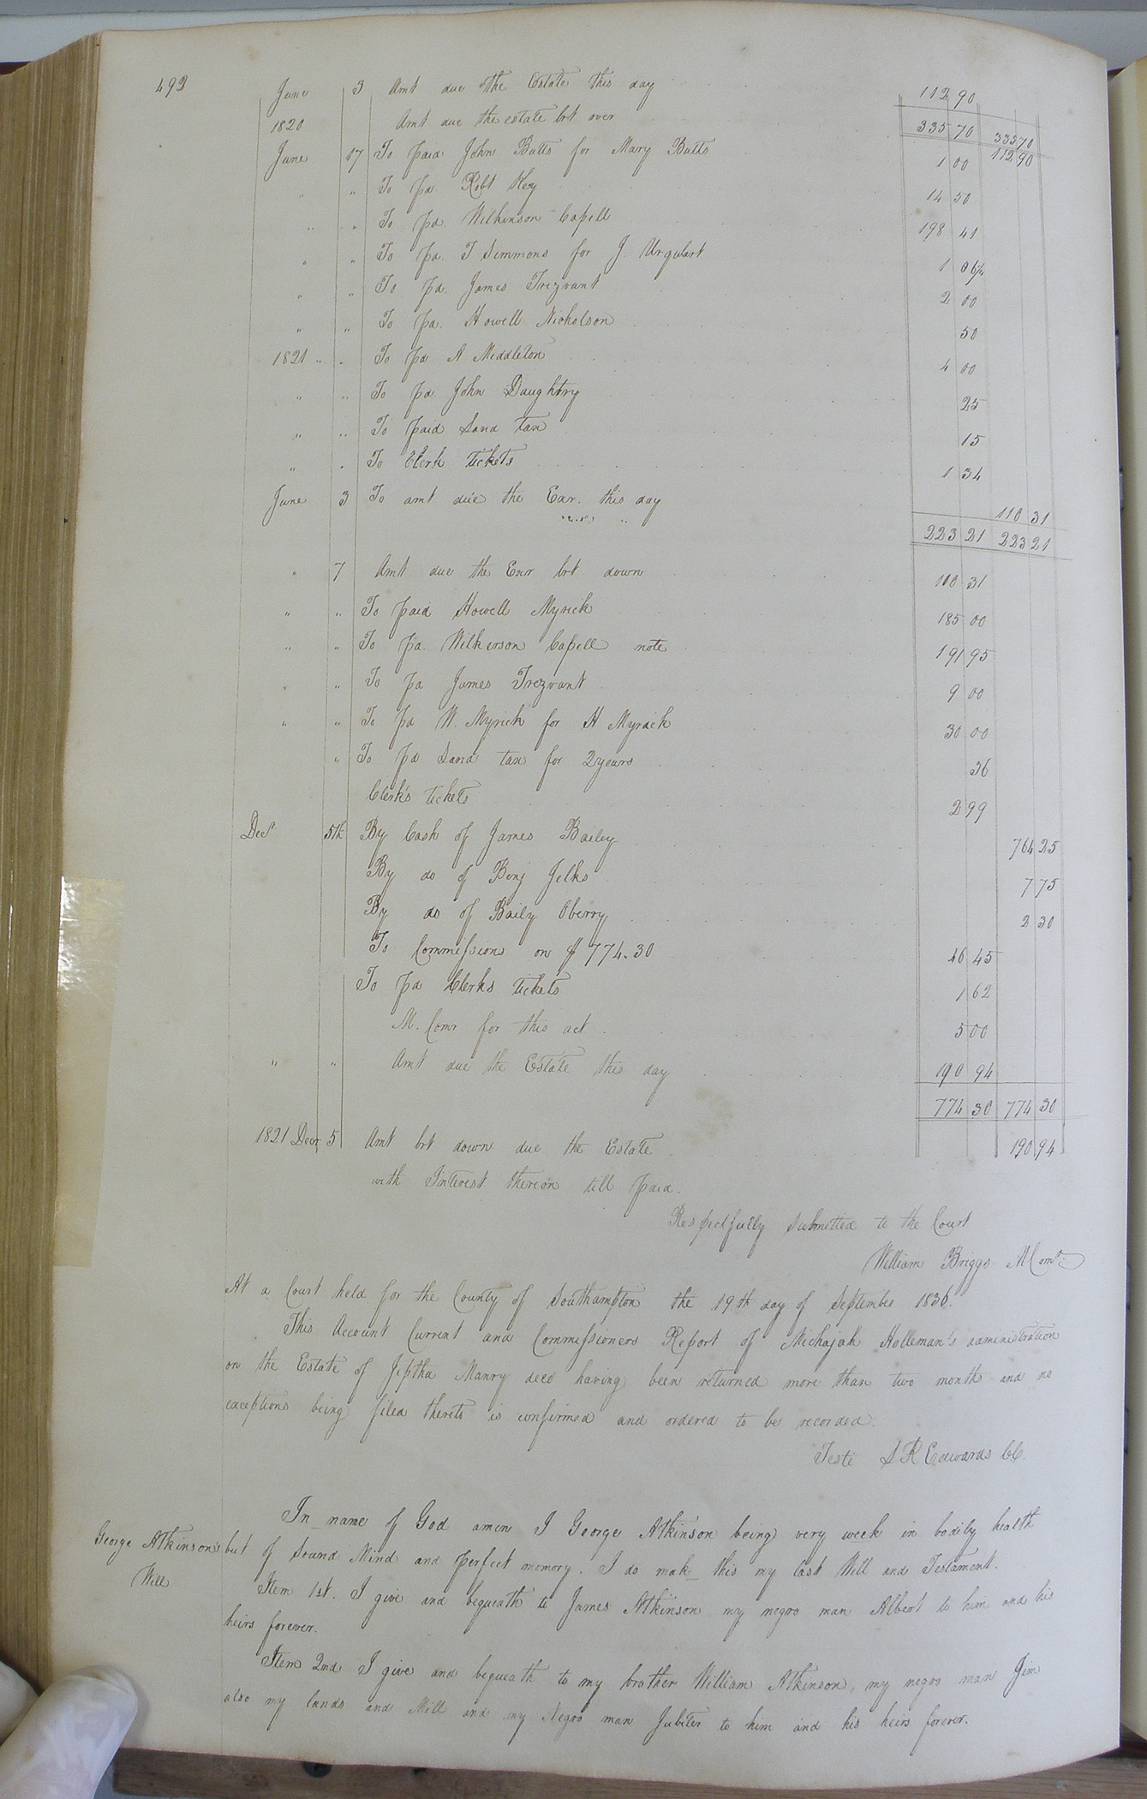 492
June 3 Amt due the Estate this day 112 90
1820 Amt due the estate brt over 335 70 335 70
June 17 To paid John Butts for Mary Butts 1 00 112 90
" To pd. Robt Key 14 50
" " To pd. Wilkinson Capell 198 41
" " To pd. T Simmons for J. Urquhart 1 06¼
" " To pd. James Trezvant 2 00
" " To pd. Howell Nicholson 50
1821 " " To pd A Middleton 4 00
" " To pd. John Daughtry 25
" " To paid Land tax 15
" " To Clerk Tickets 1 34
June 3 To amt due the Exr. this day 110 31
223 21 223 21
" 7 Amt due the Exr brt down 110 31
" " To paid Howell Myrick 185 00
" " To pd. Wilkerson Capell note 191 95
" " To pd James Trezvant 9 00
" " To pd W. Myrick for H Myrick 30 00
" To pd Land tax for 2 years 36
Clerk's Tickets 2 99
Decr 5th By Cash of James Bailey 764 25
By do of Benj Jelks 7 75
By do of Baily Oberry 2 30
To Commissions on $774.30 46 45
To pd Clerks Tickets 1 62
M. Comr for this act 5 00
" " Amt due the Estate this day 190 94
774 30 774 30
1821 Decr 5 Amt brt down due the Estate 190 94
with Interest thereon till paid.
Respectfully submitted to the Court
William Briggs M Comr.
At a Court held for the County of Southampton the 19th day of September 1836.
This Account Current and Commissioners Report of Michajah Holleman's administration
on the Estate of Jeptha Manry decd having been returned more than two month and no
exceptions being filed thereto is confirmed and ordered to be recorded.
Teste L R Edwards CC.
In name of God amen I George Atkinson being very week in bodily health
George Atkinson's but of Sound Mind and perfect memory. I do mak this my last Will and Testament.
Will
Item 1st. I give and bequeath to James Atkinson my negro man Albert to him and his
heirs forever.
Item 2nd I give and bequeath to my brother William Atkinson, my negro man Jim
also my lands and Mill and my Negro man Jubiter to him and his heirs forever.